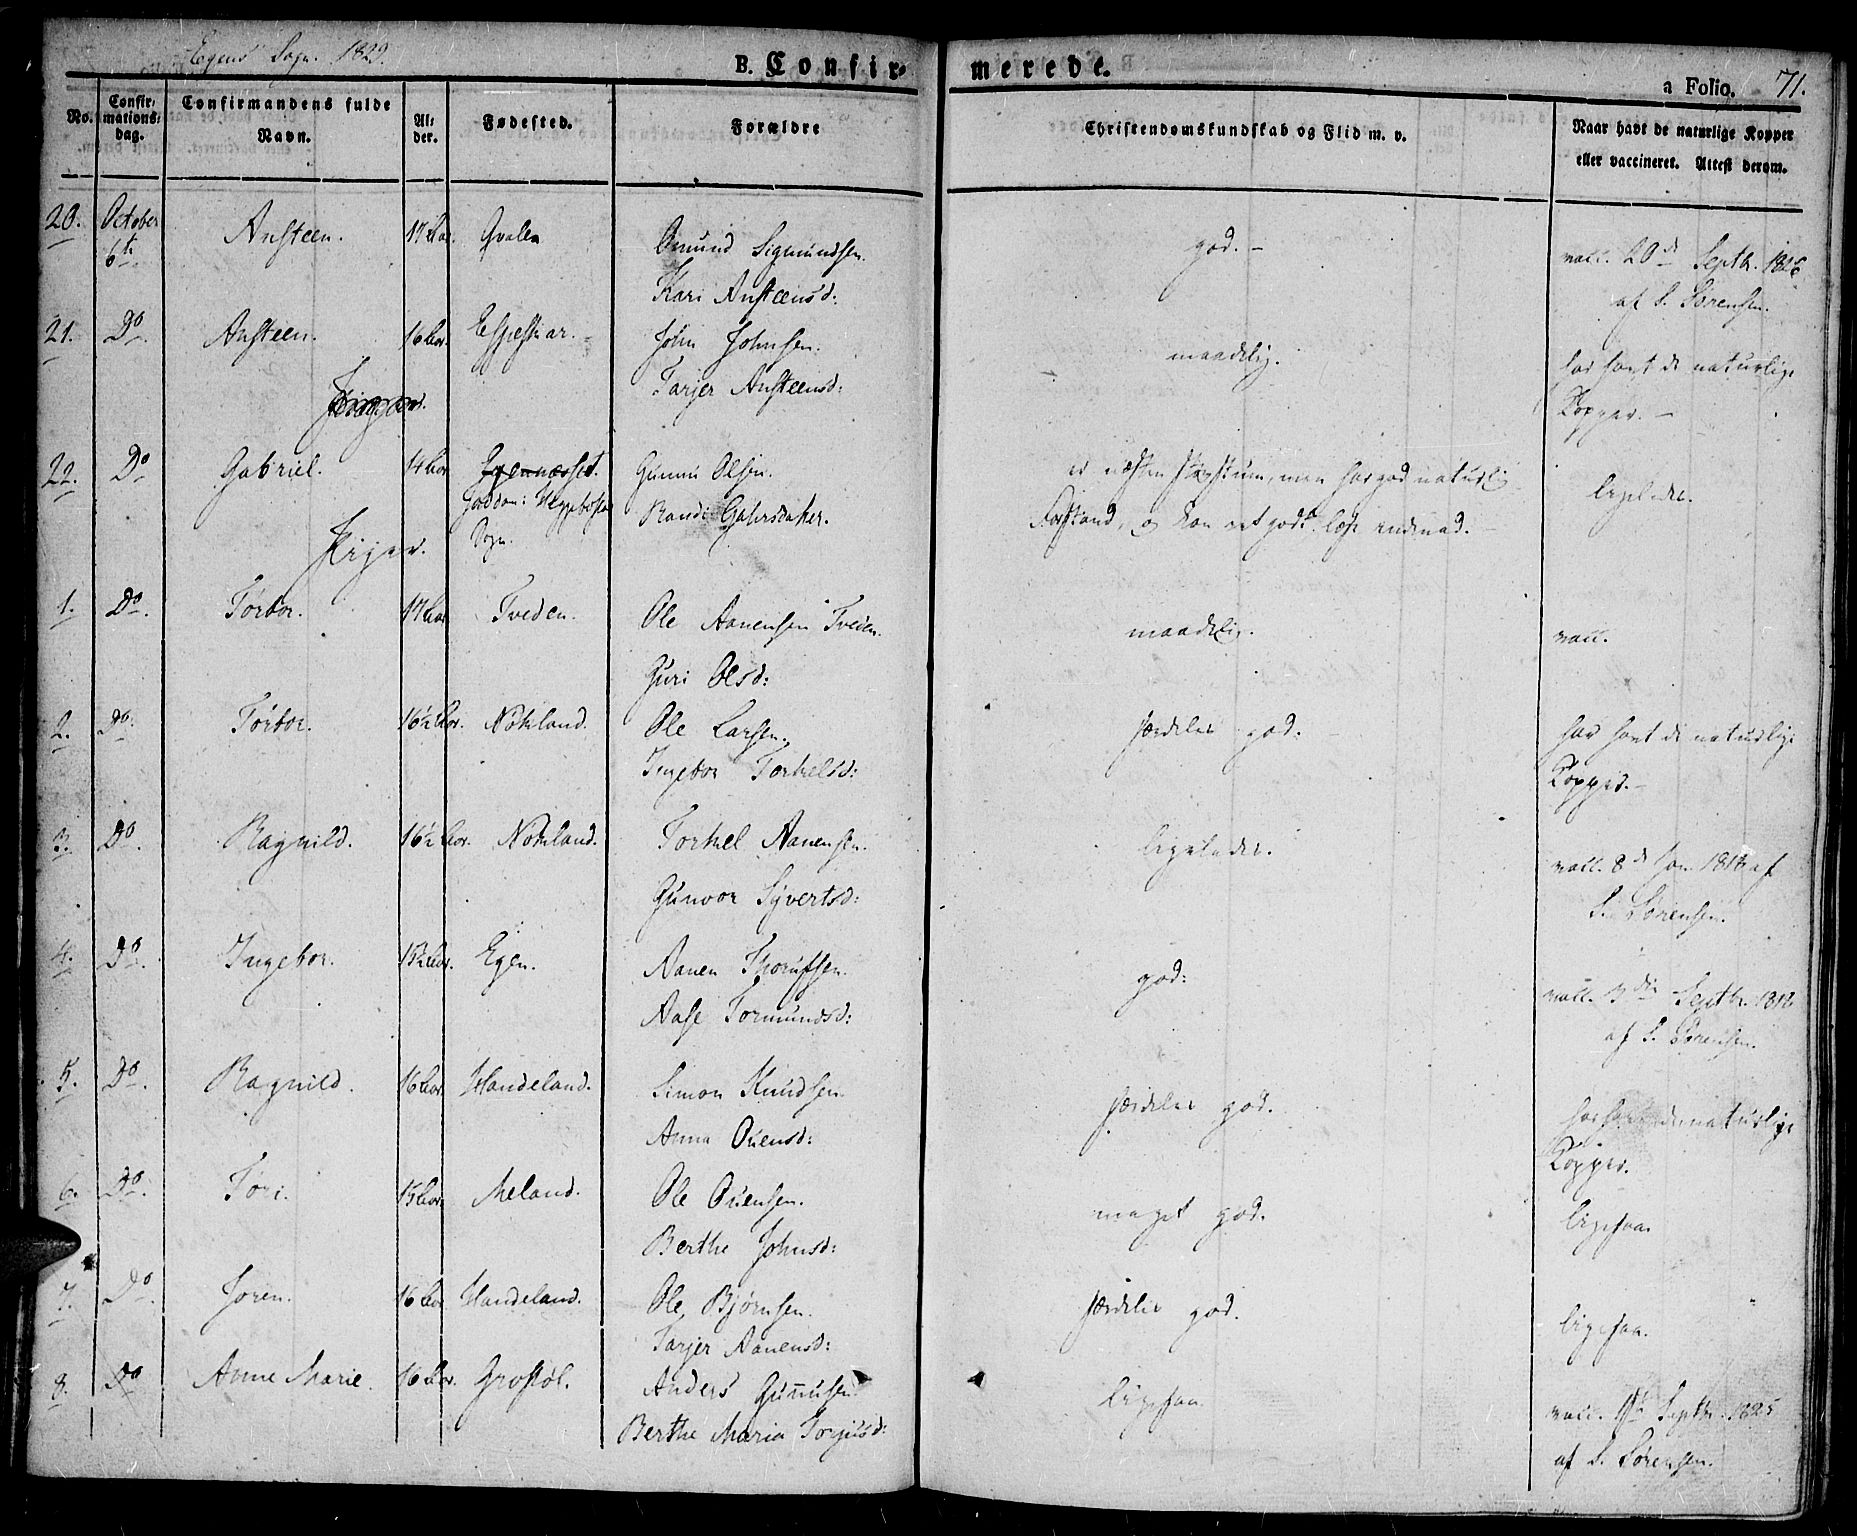 Egens Sogn. 1829.
B. Confirmerede.
a Folio. 71.
No. Confirmationsdag. Confirmandens fulde Navn. Alder. Fødested. Forældre Christendomskundskab og Flid m. v. Naar havt de naturlige Kopper eller vaccineret. Attest derom.
20. October 6te Ansteen. 17 Aar. Qvalen Omund Sigmundsen. god. – vacc. 20de Septbr.
Kari Ansteensd: af S. Sørensen.
21. Do Ansteen. 16 Aar. John Johnsen. maadelig. har havt de naturlige
Tarjer Ansteensd: Kopper. –
22. Do Gabriel. 14 Aar Egenæsset. Gunni Olsen. er næsten stum, men har god naturlig ligeledes.
Sogn. Randi Forstand, og kan ret godt læse indenad.
Piger.
1. Do. Torbor. 17 Aar Tveden. Ole Aanensen Tveden. maadelig. vacc.
Guri Olsd:
2. Do. Torbor. 16½ Aar. Nokland. Ole Larsen. særdeles god. har havt de naturlige
Ingebor Torkelsd: Kopper. –
3. Do Ragnild. 16½ Aar. Nokland. Torkel Aanensen. ligeledes. vacc. 8de Jan. af
Gunvor Syvertsd: S. Sørensen.
4. Do. Ingebor. 15½ Aar. Egen. Aanen god: vacc. Septbr.
Aase Tormundsd: af S. Sørensen.
5. Do. Ragnild. 16 Aar. Handeland. Simon Knudsen. særdeles god. har havt de naturlige
Anna Ouensd: Kopper.
6. Do. Tori. 15 Aar. Meland. Ole Ouensen. meget god. ligesaa.
Berthe Johnsd:
7. Do. Joren. 16 Aar Handeland. Ole Bjørnsen. særdeles god. ligesaa.
Tarjer Aanensd:
8. Do Anne Marie. 16 Aar. Grostøl. Anders Gunnusen. ligesaa vacc. Septbr. 1825
Berthe Maria Torjusd: af S. Sørensen.